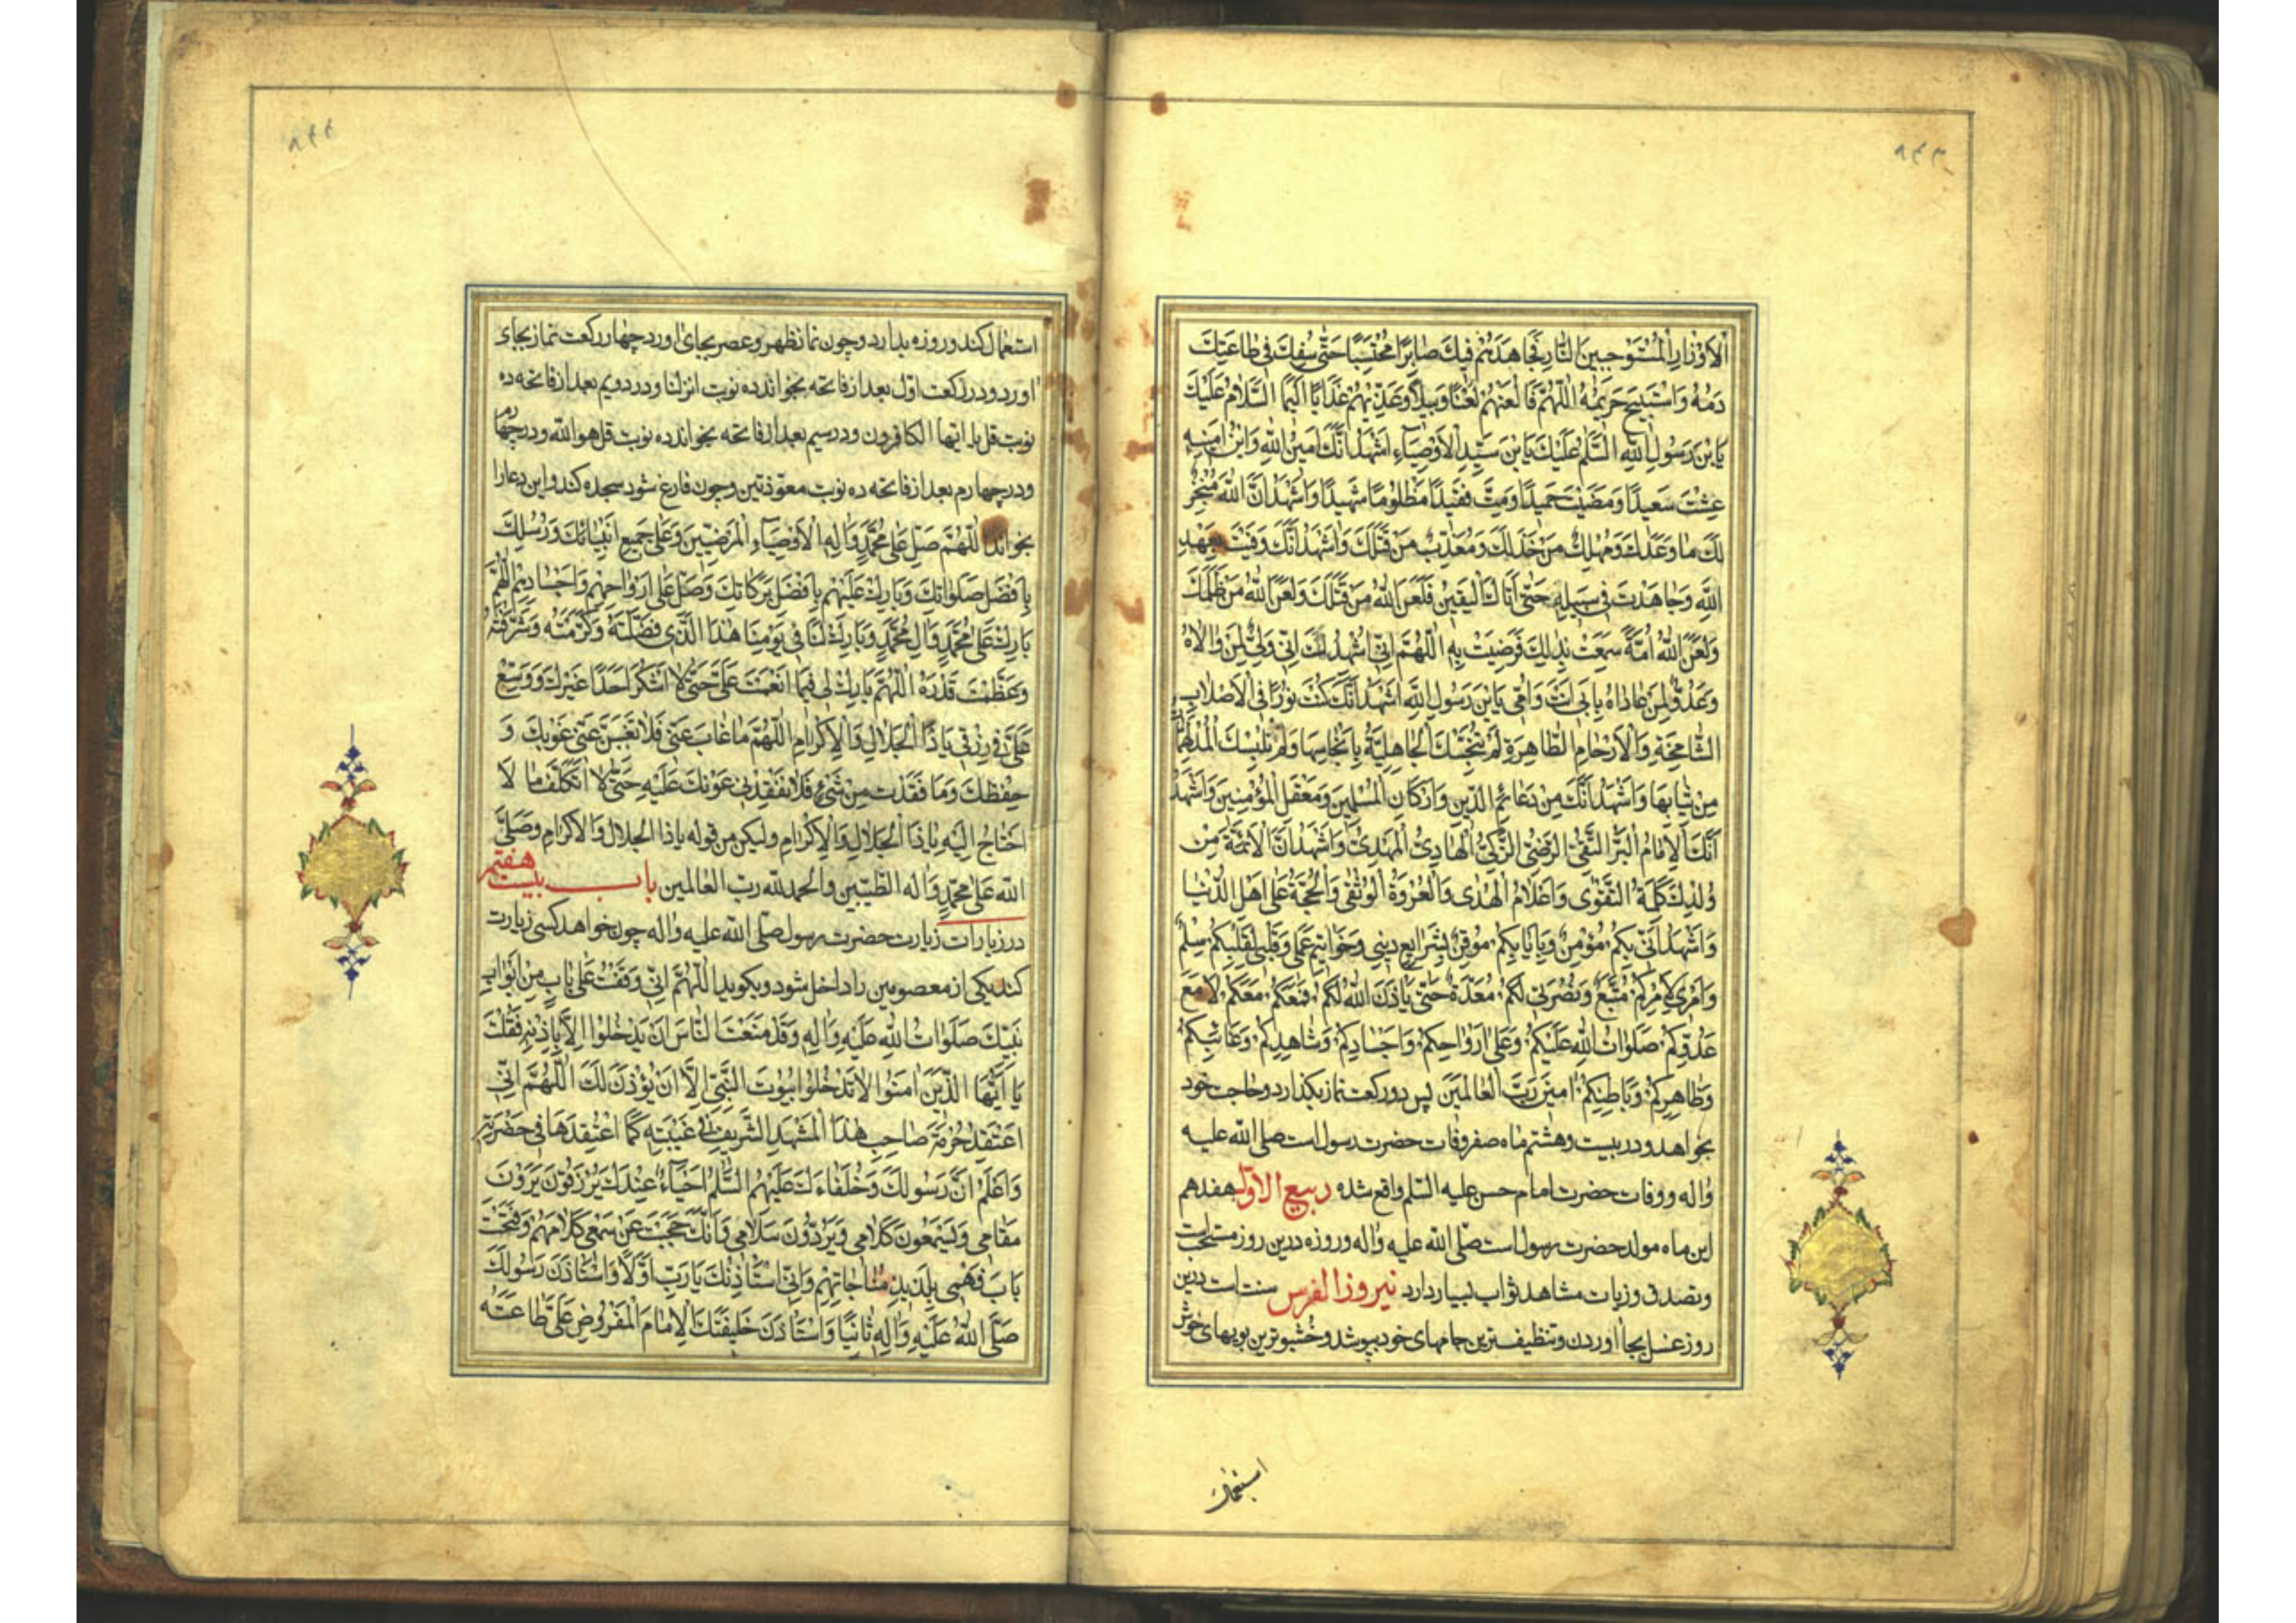 ٨٤٣
الاَوْزارِ الْمُسْتَوْجِبينَ النّارَ فَجاهَدَهُمْ فيكَ صابِرًا مُحْتَسِبًا حَتّى سُفِكَ فى طاعَتِكَ
دَمُهُ وَاسْتُبيحَ حَريمُهُ اَللّهُمَّ فَالْعَنْهُمْ لَعْنًا وَبيلاً وَعَذِّبْهُمْ عَذابًا اَليمًا اَلسَّلامُ عَلَيْكَ
يَابْنَ رَسُولِ اللّهِ اَلسَّلمُ عَلَيْكَ يَابْنَ سَيِّدِ الاَوْصِيآءِ اَشْهَدُ اَنَّكَ اَمينُ اللّهِ وَابْنُ اَمينِهِ
عِشْتَ سَعيدًا وَمَضَيْتَ حَميدًا وَمِتَّ فَقيدًا مَظْلُومًا شَهيدًا وَاَشْهَدُ اَنَّ اللّهَ مُنْجِزٌ
لَكَ ما وَعَدَكَ وَمُهْلِكٌ مَنْ خَذَلَكَ وَمُعَذِّبٌ مَنْ قَتَلَكَ وَاَشْهَدُ اَنَّكَ وَفَيْتَ بِعَهْدِ
اللّهِ وَجاهَدْتَ فى سَبيلِهِ حَتّى اَتاكَ الْيَقينُ فَلَعَنَ اللّهُ مَنْ قَتَلَكَ وَلَعَنَ اللّهُ مَنْ ظَلَمَكَ
وَلَعَنَ اللّهُ اُمَّةً سَمِعَتْ بِذلِكَ فَرَضِيَتْ بِهِ اَللّهُمَّ اِنّى اُشْهِدُكَ اَنّى وَلِىٌّ لِمَنْ والاهُ
وَعَدُوٌّ لِمَنْ عاداهُ بِاَبى اَنْتَ وَاُمّى يَابْنَ رَسُولِ اللّهِ اَشْهَدُ اَنَّكَ كُنْتَ نُورًا فى الاَصْلابِ
الشّامِخَةِ وَالاَرْحامِ الطّاهِرَةِ لَمْ تُنَجِّسْكَ الْجاهِلِيَّةُ بِاَنْجاسِها وَلَمْ تُلْبِسْكَ الْمُدْلَهِمّاتُ
مِنْ ثِيابِها وَاَشْهَدُ اَنَّكَ مِنْ دَعآئِمِ الدّينِ وَاَرْكانِ الْمُسْلِمينَ وَمَعْقِلِ الْمُؤْمِنينَ وَاَشْهَدُ
اَنَّكَ الاِمامُ الْبَرُّ التَّقِىُّ الرَّضِىُّ الزَّكِىُّ الْهادِىُ الْمَهْدِىُّ وَاَشْهَدُ اَنَّ الاَئِمَّةَ مِنْ
وُلْدِكَ كَلِمَةُ التَّقْوى وَاَعْلامُ الْهُدى وَالْعُرْوَةُ الْوُثْقى وَالْحُجَّةُ عَلى اَهْلِ الدُّنْيا
وَاَشْهَدُ اَنّى بِكُمْ مُؤْمِنٌ وَبِاِيابِكُمْ مُوقِنٌ بِشَرايِعِ دينى وَخَواتيمِ عَمَلى وَقَلْبى لِقَلْبِكُمْ سِلْمٌ
وَاَمْرى لاَمْرِكُمْ مُتَّبِعٌ وَنُصْرَتى لَكُمْ مُعَدَّةٌ حَتّى يَاْذَنَ اللّهُ لَكُمْ فَمَعَكُمْ مَعَكُمْ لا مَعَ
عَدُوِّكُمْ صَلَواتُ اللّهِ عَلَيْكُمْ وَعَلى اَرْواحِكُمْ وَاَجْسادِكُمْ وَشاهِدِكُمْ وَغائِبِكُمْ
وَظاهِرِكُمْ وَباطِنِكُمْ امينَ رَبَّ الْعالَمينَ پس دو ركعت نماز بكذارد وحاجت خود
بخواهد ودر بيست وهشتم ماه صفر وفات حضرت رسول است صلى الله عليه
واله ووفات حضرت امام حسن عليه السّلم واقع شده ربيع الاوّل هفدهم
اين ماه مولد حضرت رسول است صلّى الله عليه واله وروزه درين روز مستحب است
وتصدق وزيارت مشاهد ثواب بسيار دارد نيروز الفرس سنت است درين
روز غسل بجا اوردن وتنظيف ترين جامهاى خود بپوشد وخشبوترين بويهاى خوش
استعمال
٨٤٤
استعمال كند وروزه بدارد وچون نماز ظهر وعصر بجاى اورد چهار ركعت نماز بجاى
اورد ودر ركعت اوّل بعد از فاتحه بخواند ده نوبت انزلنا ودر دويم بعد از فاتحه ده
نوبت قل يا ايها الكافرون ودر سيم بعد از فاتحه بخواند ده نوبت قل هو الله ودر چهارم
ودر چهارم بعد از فاتحه ده نوبت معوّذتين وچون فارغ شود سجده كند واين دعا را
بخواند اَللّهُمَّ صَلِّ عَلى مُحَمَّدٍ وَالِهِ الاَوْصِيآءِ الْمَرْضِيّينَ وَعَلى جَميعِ اَنْبِيائِكَ وَرُسُلِكَ
بِاَفْضَلِ صَلَواتِكَ وَبارِكْ عَلَيْهِمْ بِاَفْضَلِ بَرَكاتِكَ وَصَلِّ عَلى اَرْواحِهِمْ وَاَجْسادِهِمْ اَللّهُمَّ
بارِكْ عَلى مُحَمَّدٍ وَالِ مُحَمَّدٍ وَبارِكْ لَنا فى يَوْمِنا هذَا الَّذى فَضَّلْتَهُ وَكَرَّمْتَهُ وَشَرَّفْتَهُ
وَعَظَّمْتَ قَدْرَهُ اَللّهُمَّ بارِكْ لى فيما اَنْعَمْتَ عَلَىَّ حَتّى لا اَشْكُرَ اَحَدًا غَيْرَكَ وَوَسِّعْ
عَلَىَّ فى رِزْقى يا ذَا الْجَلالِ وَالاِكْرامِ اَللّهُمَّ ما غابَ عَنّى فَلا تُغَيِّبَنَّ عَنّى عَوْنَكَ وَ
حِفْظَكَ وَما فَقَدْتُ مِنْ شَىْءٍ فَلا تُفْقِدْنى عَوْنَكَ عَلَيْهِ حَتّى لا اَتَكَلَّفَ ما لا
اَحْتاجُ اِلَيْهِ يا ذَا الْجَلالِ وَالاِكْرامِ وليكن من قوله يا ذا الجلال والاكرام وصلّى
الله على محمّد واله الطّيّبين والحمد لله ربّ العالمين باب بيست هفتم
در زيارات زيارت حضرت رسول صلّى الله عليه واله چون خواهد كسى زيارت
كند يكى از معصومين را داخل شود وبكويد اَللّهُمَّ اِنّى وَقَفْتُ عَلى بابٍ مِنْ اَبْوابِ
نَبِيِّكَ صَلَواتُ اللّهِ عَلَيْهِ وَالِهِ وَقَدْ مَنَعْتَ النّاسَ اَنْ يَدْخُلُوا اِلاّ بِاِذْنِهِ فَقُلْتَ
يا اَيُّهَا الَّذينَ امَنُوا لا تَدْخُلُوا بُيُوتَ النَّبِىِّ اِلاّ اَنْ يُؤْذَنَ لَكَ اَللّهُمَّ اِنّى
اَعْتَقِدُ حُرْمَةَ صاحِبِ هذَا الْمَشْهَدِ الشَّريفِ فى غَيْبَتِهِ كَما اَعْتَقِدُها فى حَضْرَتِهِ
وَاَعْلَمُ اَنَّ رَسُولَكَ وَخُلَفاءَكَ عَلَيْهِمُ السَّلمُ اَحْيآءٌ عِنْدَكَ يُرْزَقُونَ يَرَوْنَ
مَقامى وَيَسْمَعُونَ كَلامى وَيَرُدُّونَ سَلامى وَاَنَّكَ حَجَبْتَ عَنْ سَمْعى كَلامَهُمْ وَفَتَحْتَ
بابَ فَهْمى بِلَذيذِ مُناجاتِهِمْ وَاِنّى اَسْتَاْذِنُكَ يا رَبِّ اَوَّلاً وَاَسْتَاْذِنُ رَسُولَكَ
صَلَّى اللّهُ عَلَيْهِ وَالِهِ ثانِيًا وَاَسْتَاْذِنُ خَليفَتَكَ الاِمامَ الْمَفْرُوضَ عَلَىَّ طاعَتُهُ